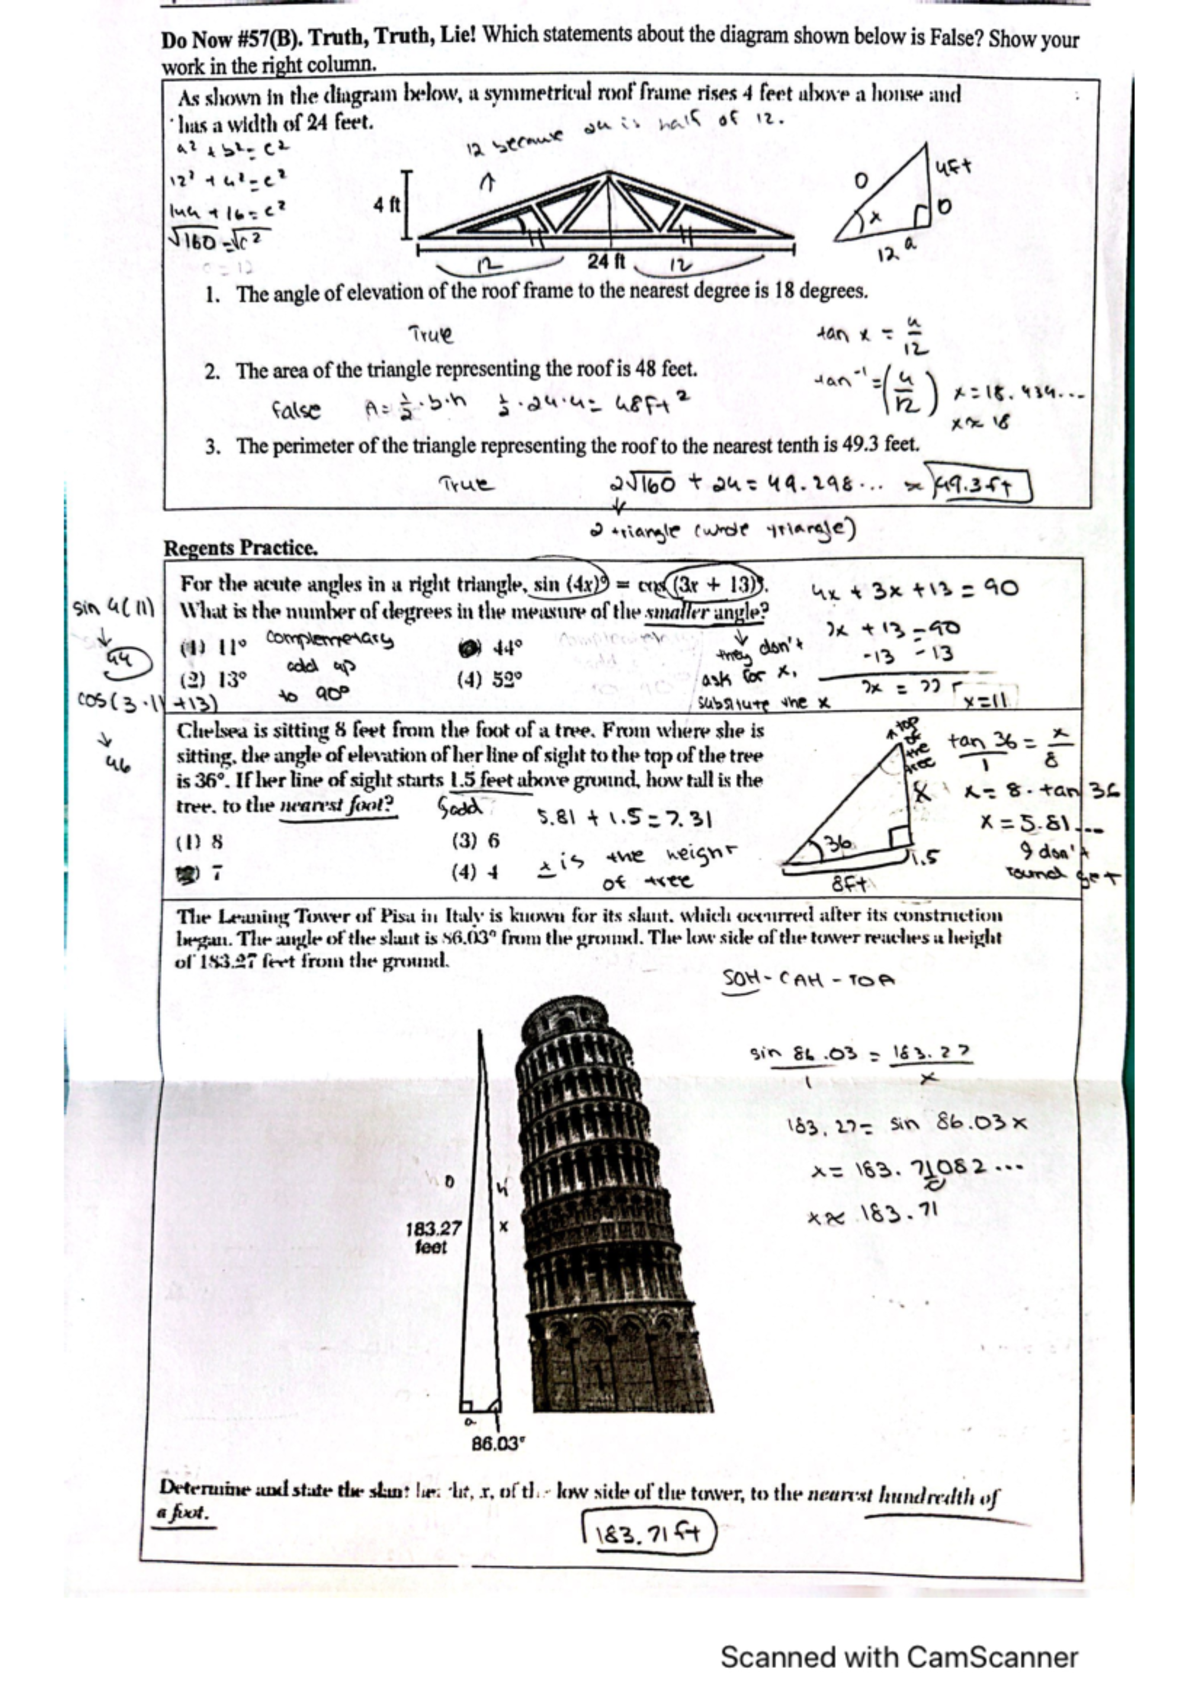 Do Now #57(B). Truth, Truth, Lie! Which statements about the diagram shown below is False? Show your
work in the right column.
As shown in the diagram below, a symmetrical roof frame rises 4 feet above a house and
has a width of 24 feet.
12 because 24 is half of 12.
a² + b² = c²
12² + 4² = c²
144 + 16 = c²
√160 = √c²
c = 12
4 ft
12
24 ft
12
O
4ft
x
O
12 a
1. The angle of elevation of the roof frame to the nearest degree is 18 degrees.
True
tan x = 4/12
2. The area of the triangle representing the roof is 48 feet.
tan⁻¹ = (4/12) x = 18.434...
x ≈ 18
false A = ½ · b · h ½ · 24 · 4 = 48ft²
3. The perimeter of the triangle representing the roof to the nearest tenth is 49.3 feet.
True 2√160 + 24 = 49.298... ≈ 49.3ft
2 triangle (whole triangle)
Regents Practice.
For the acute angles in a right triangle, sin (4x)° = cos (3x + 13)°.
What is the number of degrees in the measure of the smaller angle?
(1) 11° complemetary 44°
(2) 13° add up (4) 52°
to 90°
they don't
ask for x,
substitute the x
4x + 3x + 13 = 90
7x + 13 = 90
-13 -13
7x = 77
x=11
sin 4(11)
44
cos(3·11+13)
46
Chelsea is sitting 8 feet from the foot of a tree. From where she is
sitting, the angle of elevation of her line of sight to the top of the tree
is 36°. If her line of sight starts 1.5 feet above ground, how tall is the
tree, to the nearest foot?
add
5.81 + 1.5 = 7.31
(1) 8 (3) 6
7 (4) 4
is the height
of tree
top
of
the
tree
x
36
1.5
8ft
tan 36 = x/8
1
x = 8 · tan 36
x = 5.81...
I don't
round yet
The Leaning Tower of Pisa in Italy is known for its slant, which occurred after its construction
began. The angle of the slant is 86.03° from the ground. The low side of the tower reaches a height
of 183.27 feet from the ground.
SOH - CAH - TOA
sin 86.03 = 183.27
1 x
183.27 = sin 86.03x
x = 183.71082...
x ≈ 183.71
O
h
183.27
feet
x
a
86.03°
Determine and state the slant height, x, of the low side of the tower, to the nearest hundredth of
a foot.
183.71 ft
Scanned with CamScanner